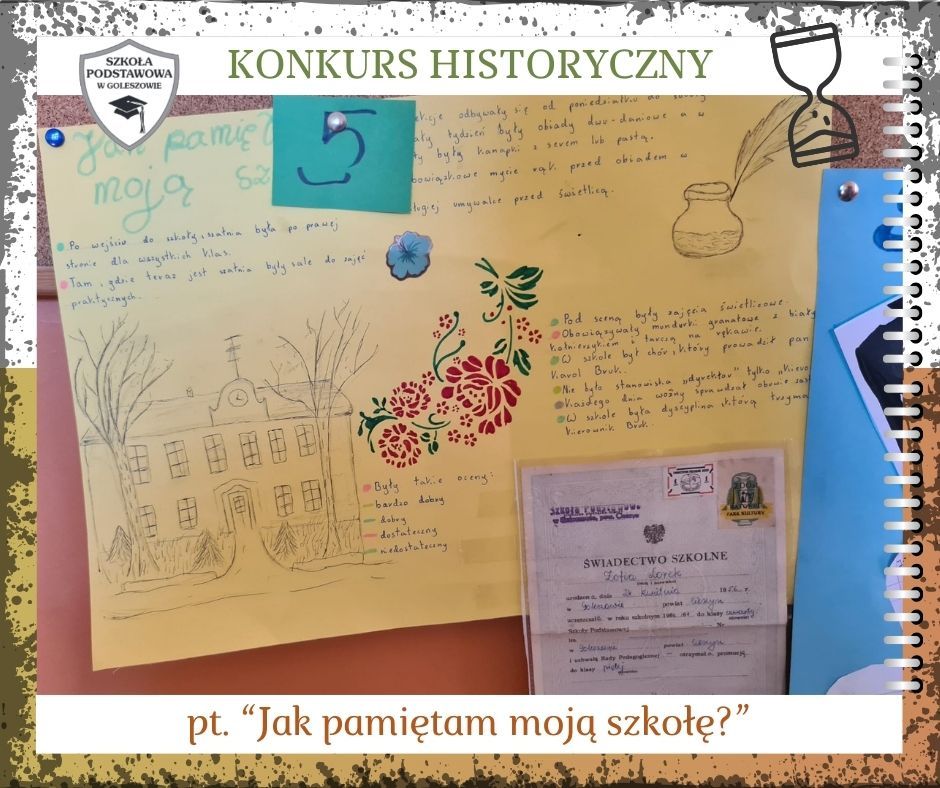 SZKOŁA
PODSTAWOWA
W GOLESZOWIE
KONKURS HISTORYCZNY
Jak pamię
moją sz
5
Po wejściu do szkoły szatnia była po prawej
stronie dla wszystkich klas.
Tam, gdzie teraz jest szatnia były sale do zajęć
praktycznych.
kcje odbywały się od poniedziałku do soboty
ały tydzień były obiady dwu-daniowe a w
ty były kanapki z serem lub pastą.
bowiązkowe mycie rąk przed obiadem w
ługiej umywalce przed świetlicą.
Pod sceną były zajęcia świetlicowe.
Obowiązywały mundurki granatowe z biały
kołnierzykiem i tarczą na rękawie.
W szkole był chór, który prowadził pan
Karol Bruk.
Nie było stanowiska "dyrektor" tylko "kiero
Każdego dnia woźny sprawdzał obuwie
W szkole była dyscyplina którą trzyma
kierownik Bruk.
Były takie oceny:
bardzo dobry
dobry
dostateczny
niedostateczny
SZKOŁA PODSTAWOWA
w Goleszowie, pow. Cieszyn
PARK KULTURY
ŚWIADECTWO SZKOLNE
Zofia Lorek
urodzona dnia kwietnia
w Goleszowie powiat Cieszyn
uczęszczał w roku szkolnym do klasy czwartej
Szkoły Podstawowej Nr
im.
w Goleszowie powiat Cieszyn
i uchwałą Rady Pedagogicznej — otrzymała promocję
do klasy piątej
pt. “Jak pamiętam moją szkołę?”